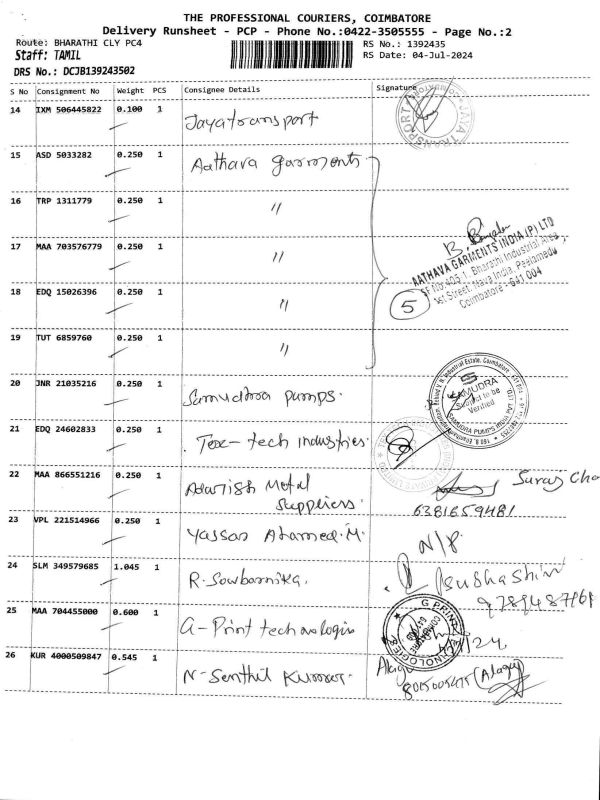 THE PROFESSIONAL COURIERS, COIMBATORE
Delivery Runsheet - PCP - Phone No.:0422-3505555 - Page No.:2
Route: BHARATHI CLY PC4
RS No.: 1392435
Staff: TAMIL
RS Date: 04-Jul-2024
DRS No.: DCJB139243502
S No Consignment No Weight PCS Consignee Details Signature
14 IXM 506445822 0.100 1 Jayatransport
15 ASD 5033282 0.250 1 Aathava garments
16 TRP 1311779 0.250 1 "
17 MAA 703576779 0.250 1 "
AATHAVA GARMENTS INDIA (P) LTD
SF No:405/1, Bharathi Industrial Area
1st Street, Nava India, Peelamedu
Coimbatore - 641 004
18 EDQ 15026396 0.250 1 "
5
19 TUT 6859760 0.250 1 "
20 JNR 21035216 0.250 1 Samudhra pumps.
SAMUDRA
Subject to be
Verified
21 EDQ 24602833 0.250 1 Tex-tech industries.
22 MAA 866551216 0.250 1 Adarish Metal
Suppliers.
Suraj
6381659481
23 VPL 221514966 0.250 1 Yassar Ahamed.M.
N/P
24 SLM 349579685 1.045 1 R.Sowbarnika.
25 MAA 704455000 0.600 1 G-Print technologies
26 KUR 4000509847 0.545 1 N-Senthil Kumar.
(Alagu)